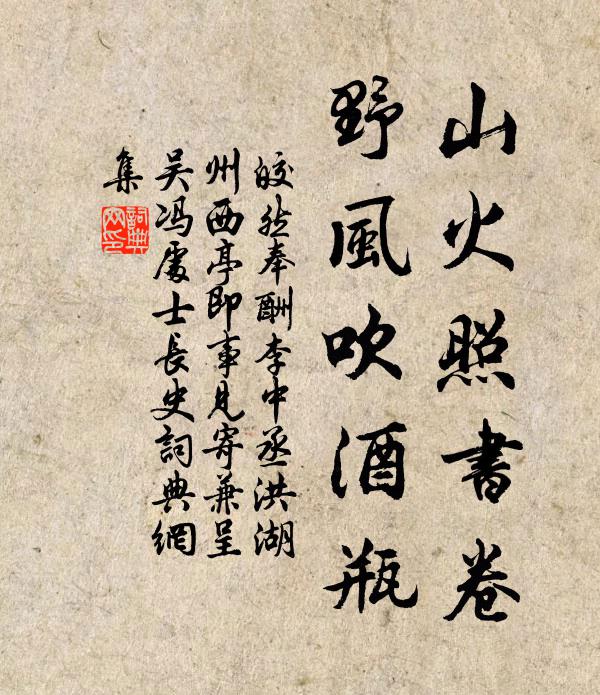 山火照書卷
野風吹酒瓶
皎然奉酬李中丞洪湖
州西亭即事見寄兼呈
吴馮處士長史詞典網
集
詞典
网印